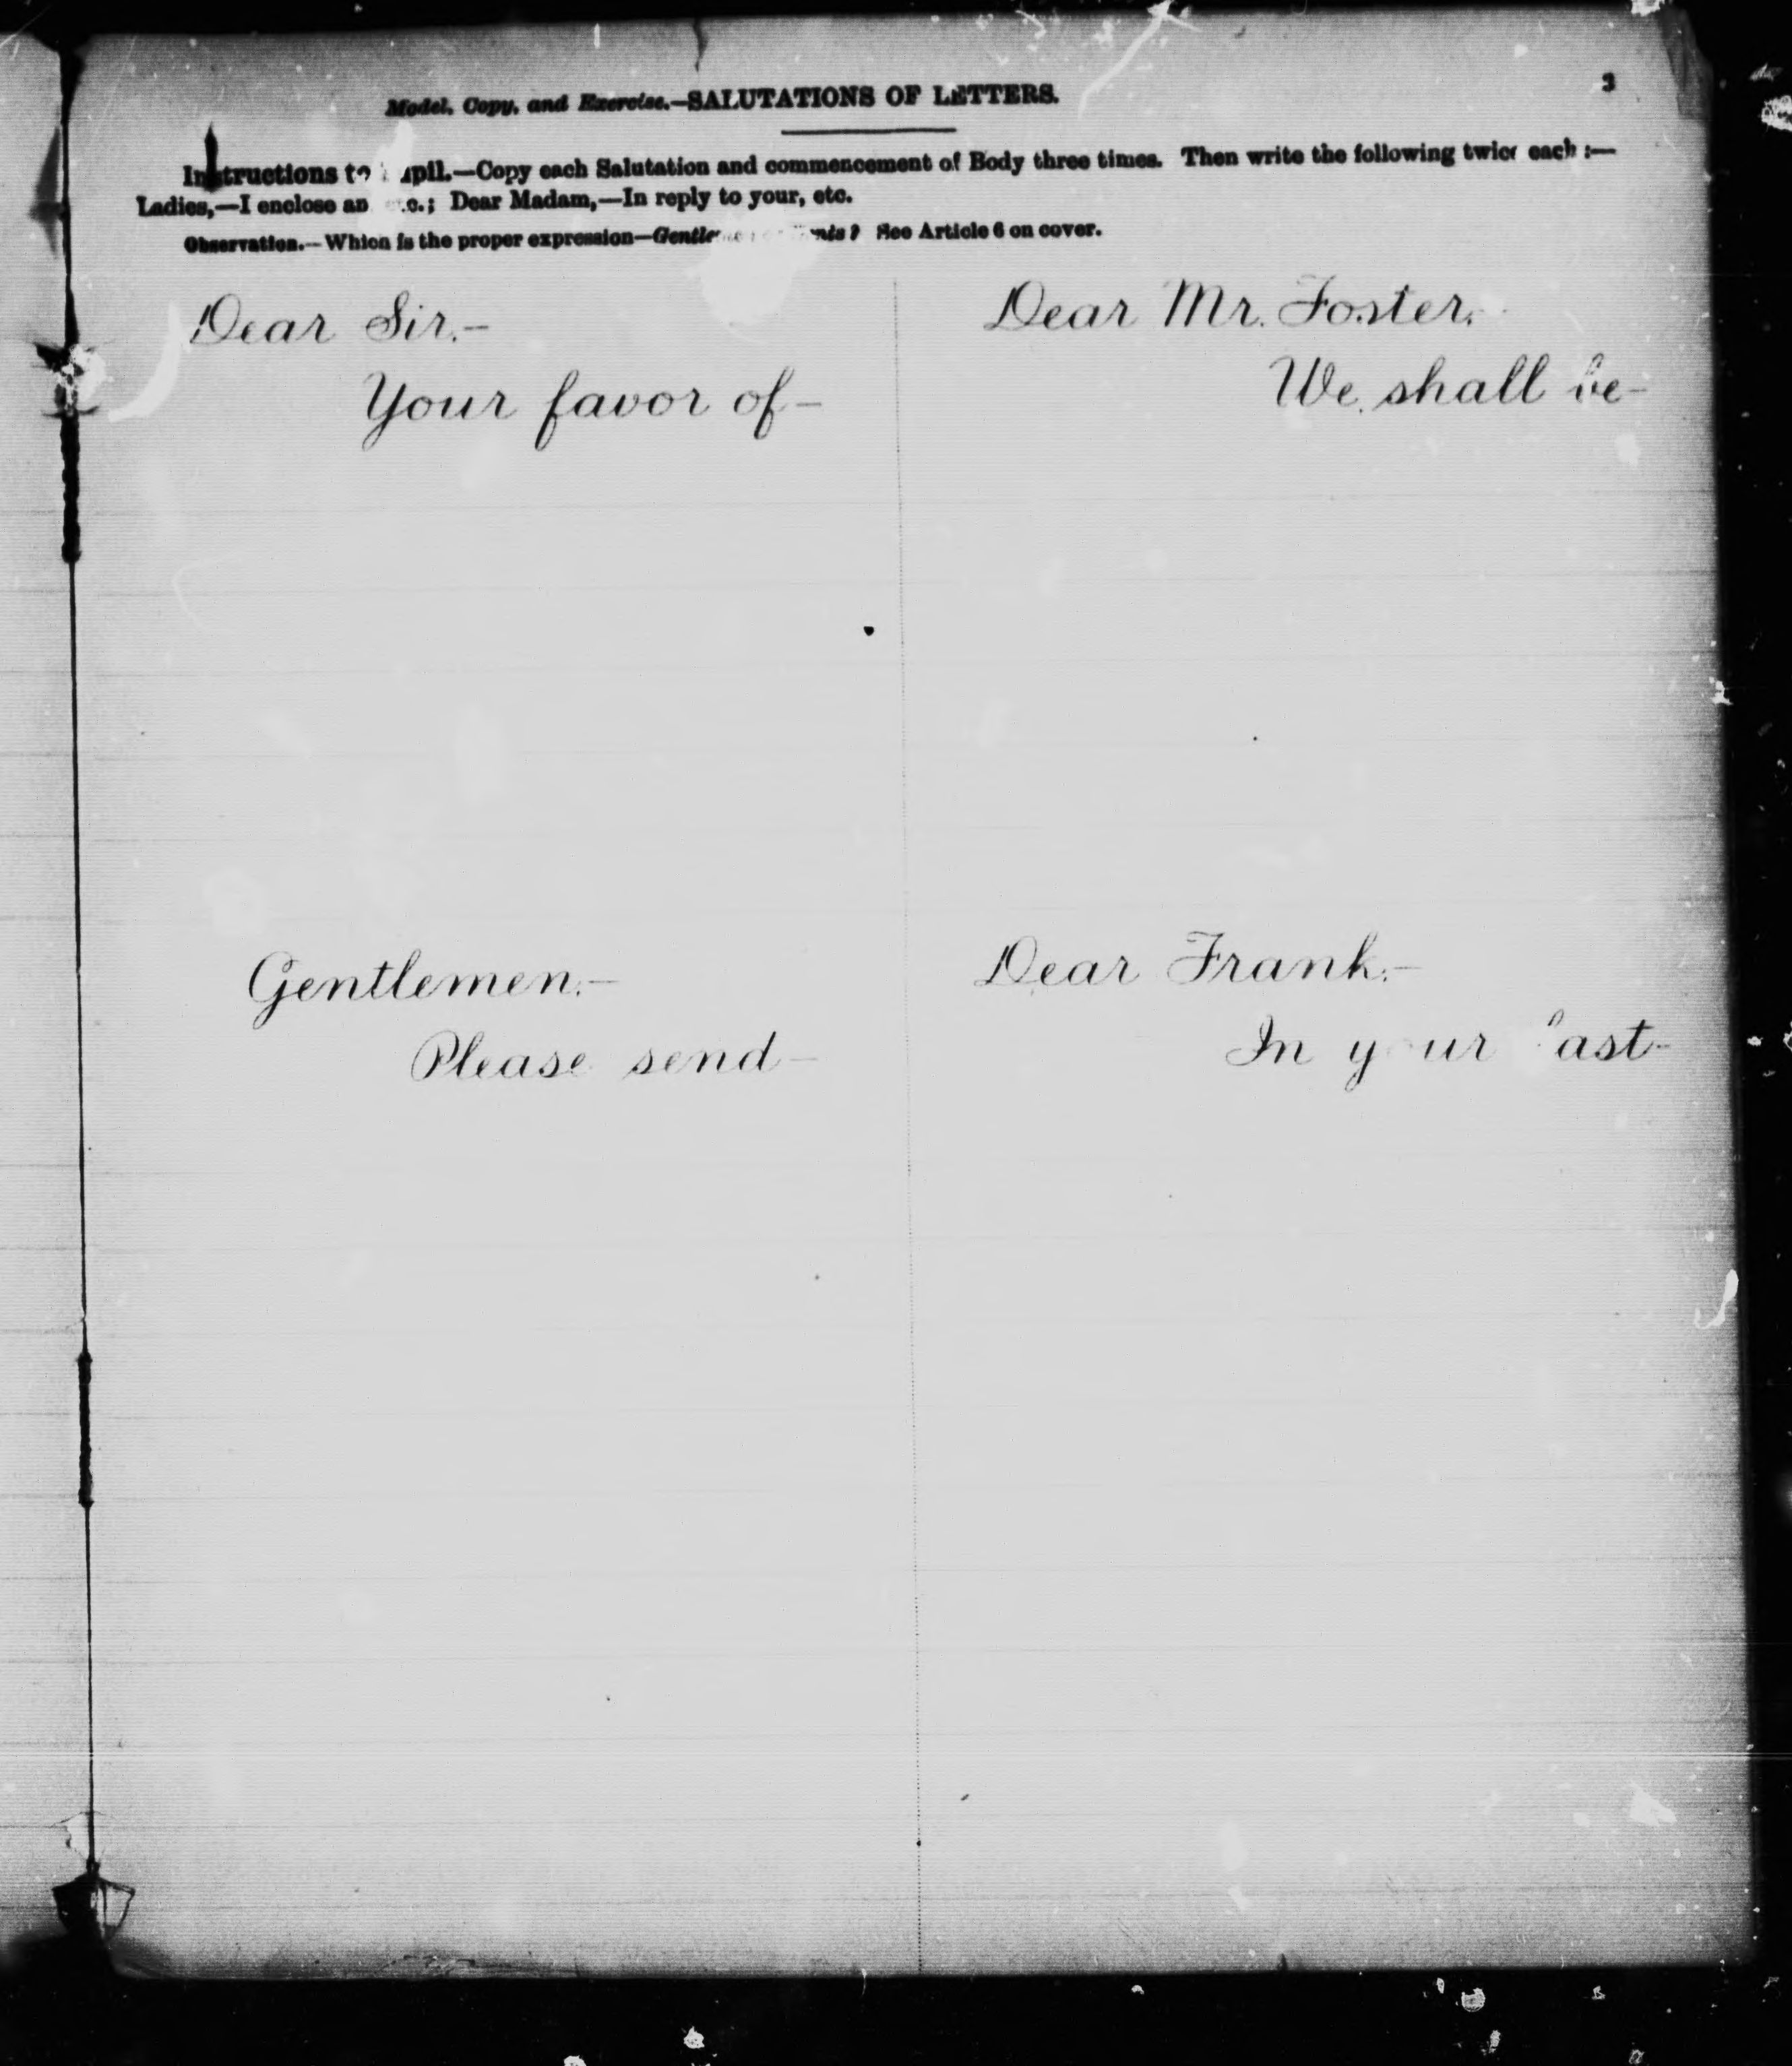 3
Model, Copy, and Exercise.—SALUTATIONS OF LETTERS.
Instructions to pil.—Copy each Salutation and commencement of Body three times. Then write the following twice each:—
Ladies,—I enclose an ; Dear Madam,—In reply to your, etc.
Observation.—Which is the proper expression— See Article 6 on cover.
Dear Sir,—
Your favor of—
Dear Mr. Foster,—
We shall be—
Gentlemen,—
Please send—
Dear Frank,—
In your last—